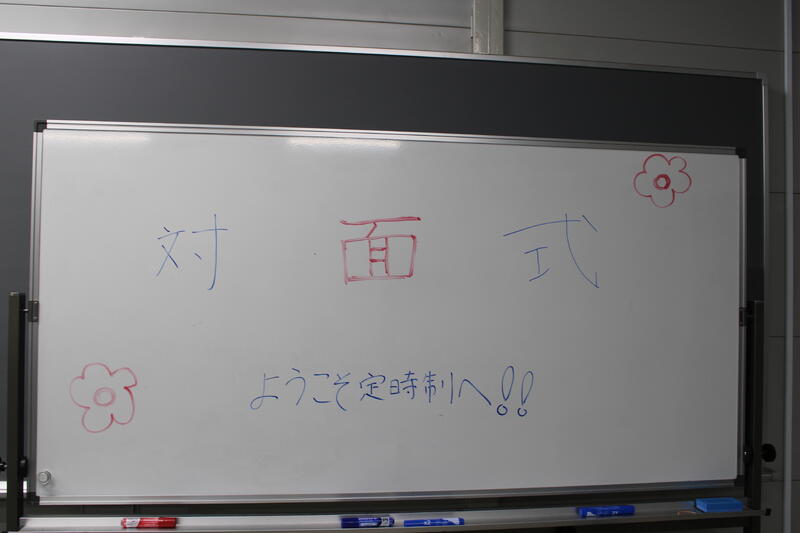 対面式
ようこそ定時制へ!!